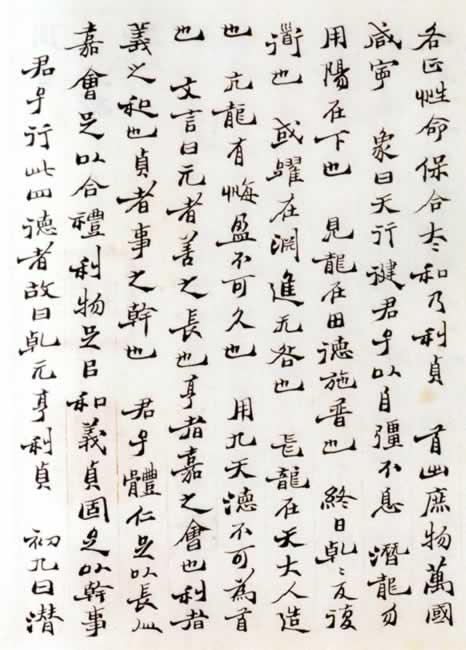 各正性命保合太和乃利貞 首出庶物萬國
咸寧 象曰天行健君子以自彊不息 潛龍勿
用陽在下也 見龍在田德施普也 終日乾〻反復
衟也 或躍在淵進无咎也 飛龍在天大人造
也 亢龍有悔盈不可久也 用九天德不可為首
也 文言曰元者善之長也亨者嘉之會也利者
義之和也貞者事之幹也 君子體仁足以長人
嘉會足以合禮利物足以和義貞固足以幹事
君子行此四德者故曰乾元亨利貞 初九曰潜